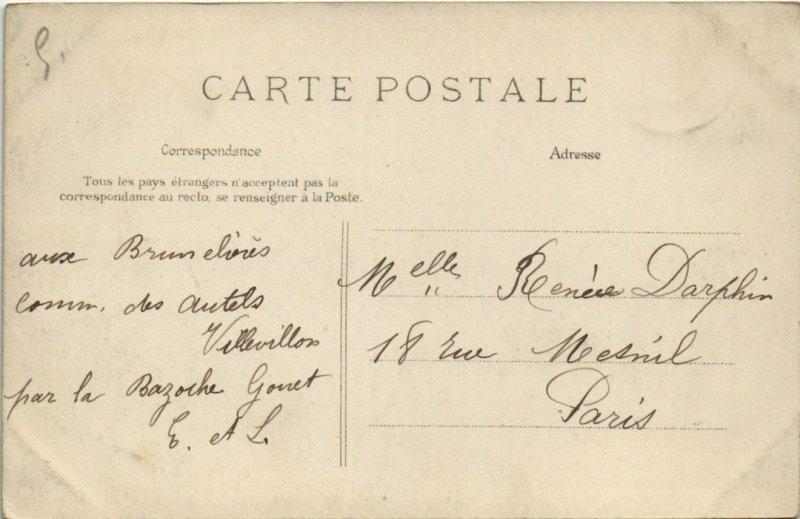 G.
CARTE POSTALE
Correspondance
Adresse
Tous les pays étrangers n'acceptent pas la
correspondance au recto, se renseigner à la Poste.
aux Brunelières
Comm. des Autels
Villevillon
par la Bazoche Gouet
E. et L.
Melle Renée Darphin
18 rue Mesnil
Paris